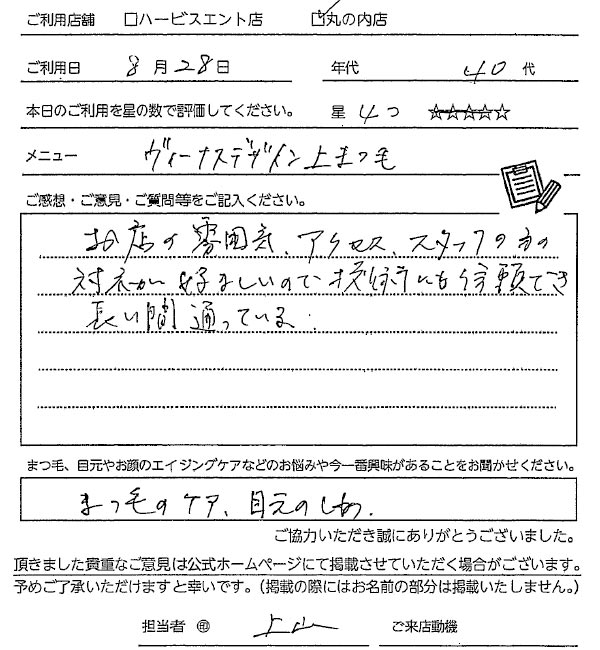 ご利用店舗 □ハービスエント店 ☑丸の内店
ご利用日 8月28日 年代 40代
本日のご利用を星の数で評価してください。 星 4つ ☆☆☆☆☆
メニュー ヴィーナスデザイン上まつ毛
ご感想・ご意見・ご質問等をご記入ください。
お店の雰囲気、アクセス、スタッフの方の
対応が好ましいので技術にも信頼でき
長い間通っている.
まつ毛、目元やお顔のエイジングケアなどのお悩みや今一番興味があることをお聞かせください。
まつ毛のケア、目元のしわ.
ご協力いただき誠にありがとうございました。
頂きました貴重なご意見は公式ホームページにて掲載させていただく場合がございます。
予めご了承いただけますと幸いです。（掲載の際にはお名前の部分は掲載いたしません。）
担当者 ㊞ 上山 ご来店動機